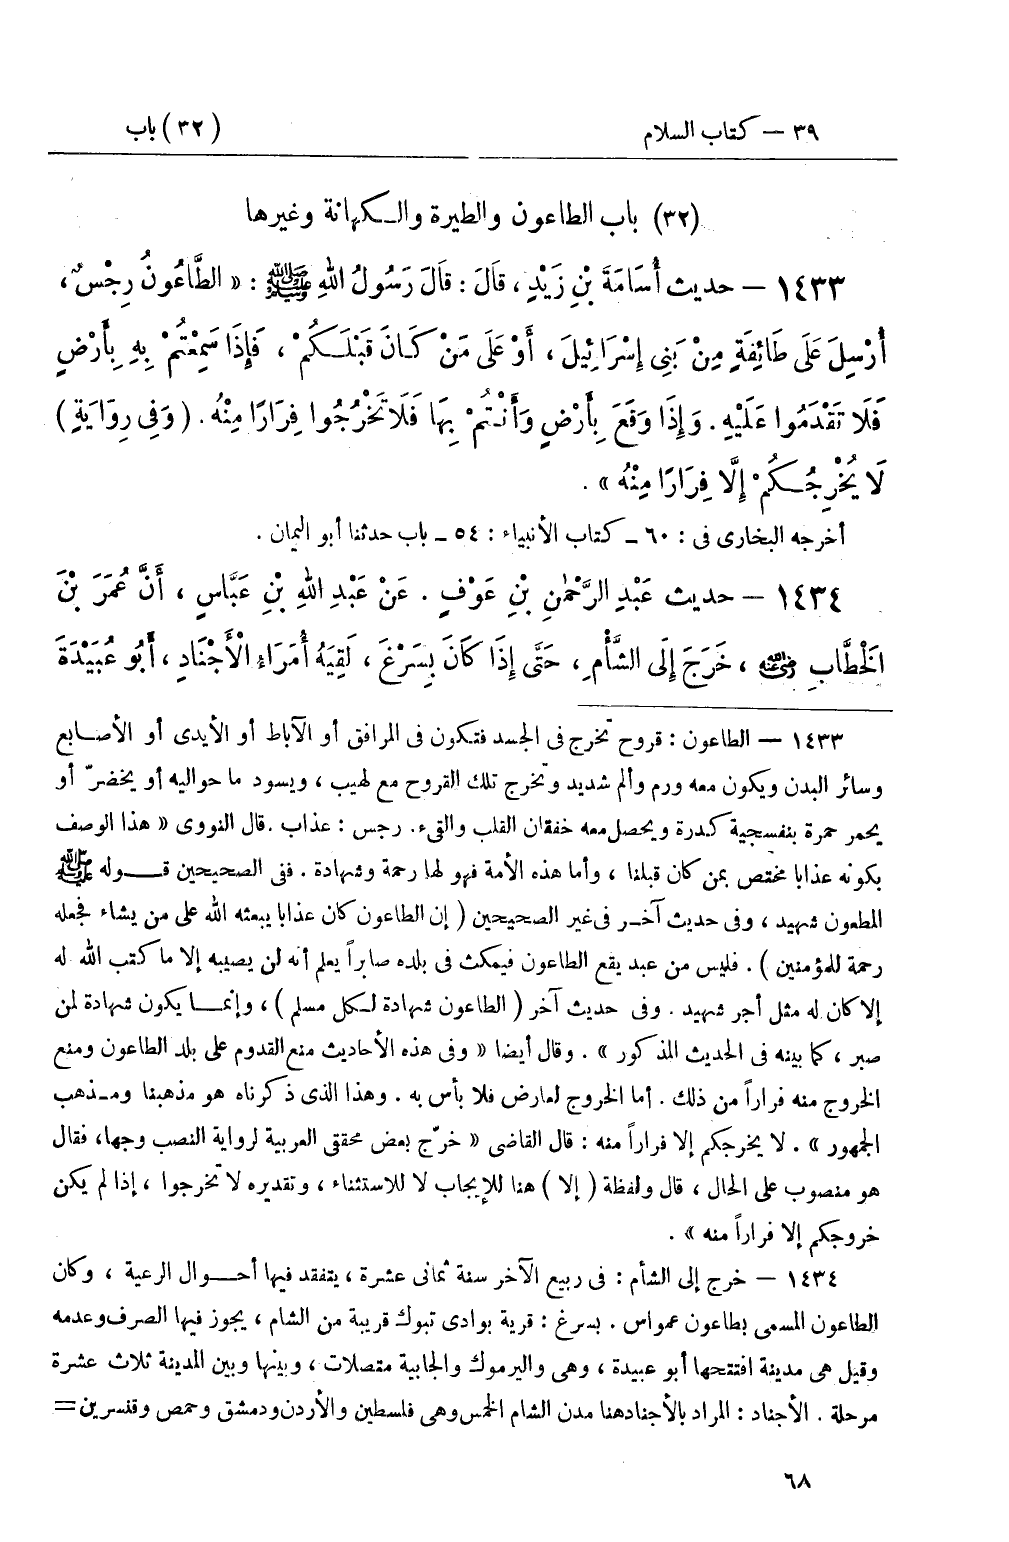 ٣٩ – كتاب السلام
(٣٢) باب
(٣٢) باب الطاعون والطيرة والكهانة وغيرها
١٤٣٣ – حديث أُسَامَةَ بْنِ زَيْدٍ، قَالَ : قَالَ رَسُولُ اللهِ ﷺ : « الطَّاعُونُ رِجْسٌ،
أُرْسِلَ عَلَى طَائِفَةٍ مِنْ بَنِي إِسْرَائِيلَ، أَوْ عَلَى مَنْ كَانَ قَبْلَكُمْ، فَإِذَا سَمِعْتُمْ بِهِ بِأَرْضٍ
فَلَا تَقْدَمُوا عَلَيْهِ. وَإِذَا وَقَعَ بِأَرْضٍ وَأَنْتُمْ بِهَا فَلَا تَخْرُجُوا فِرَارًا مِنْهُ. (وَفِي رِوَايَةٍ)
لَا يُخْرِجُكُمْ إِلَّا فِرَارًا مِنْهُ ».
أخرجه البخارى فى : ٦٠ ـ كتاب الأنبياء : ٥٤ ـ باب حدثنا أبو اليمان .
١٤٣٤ – حديث عَبْدِ الرَّحْمٰنِ بْنِ عَوْفٍ . عَنْ عَبْدِ اللهِ بْنِ عَبَّاسٍ ، أَنَّ عُمَرَ بْنَ
الْخَطَّابِ رضي الله عنه ، خَرَجَ إِلَى الشَّأْمِ، حَتَّى إِذَا كَانَ بِسَرْغَ ، لَقِيَهُ أُمَرَاءُ الْأَجْنَادِ ، أَبُو عُبَيْدَةَ
١٤٣٣ – الطاعون : قروح تخرج فى الجسد فتكون فى المرافق أو الآباط أو الأيدى أو الأصابع
وسائر البدن ويكون معه ورم وألم شديد وتخرج تلك القروح مع لهيب ، ويسود ما حواليه أو يخضرّ أو
يحمر حمرة بنفسجية كدرة ويحصل معه خفقان القلب والقيء. رجس : عذاب . قال النووى « هذا الوصف
بكونه عذابا مختص بمن كان قبلنا ، وأما هذه الأمة فهو لها رحمة وشهادة . ففى الصحيحين قوله ﷺ
المطعون شهيد ، وفى حديث آخر فى غير الصحيحين ( إن الطاعون كان عذابا يبعثه الله على من يشاء فجعله
رحمة للمؤمنين ) . فليس من عبد يقع الطاعون فيمكث فى بلده صابراً يعلم أنه لن يصيبه إلا ما كتب الله له
إلا كان له مثل أجر شهيد . وفى حديث آخر ( الطاعون شهادة لكل مسلم ) ، وإنما يكون شهادة لمن
صبر ، كما بينه فى الحديث المذكور » . وقال أيضا « وفى هذه الأحاديث منع القدوم على بلد الطاعون ومنع
الخروج منه فراراً من ذلك . أما الخروج لعارض فلا بأس به . وهذا الذى ذكرناه هو مذهبنا ومذهب
الجمهور » . لا يخرجكم إلا فراراً منه : قال القاضى « خرّج بعض محققى العربية لرواية النصب وجها، فقال
هو منصوب على الحال ، قال ولفظة ( إلا ) هنا للإيجاب لا للاستثناء ، وتقديره لا تخرجوا ، إذا لم يكن
خروجكم إلا فراراً منه » .
١٤٣٤ – خرج إلى الشأم : فى ربيع الآخر سنة ثمانى عشرة ، يتفقد فيها أحوال الرعية ، وكان
الطاعون المسمى بطاعون عمواس . بسرغ : قرية بوادى تبوك قريبة من الشام ، يجوز فيها الصرف وعدمه
وقيل هى مدينة افتتحها أبو عبيدة ، وهى واليرموك والجابية متصلات ، وبينها وبين المدينة ثلاث عشرة
مرحلة . الأجناد : المراد بالأجناد هنا مدن الشام الخمس وهى فلسطين والأردن ودمشق وحمص وقنسرين=
٦٨